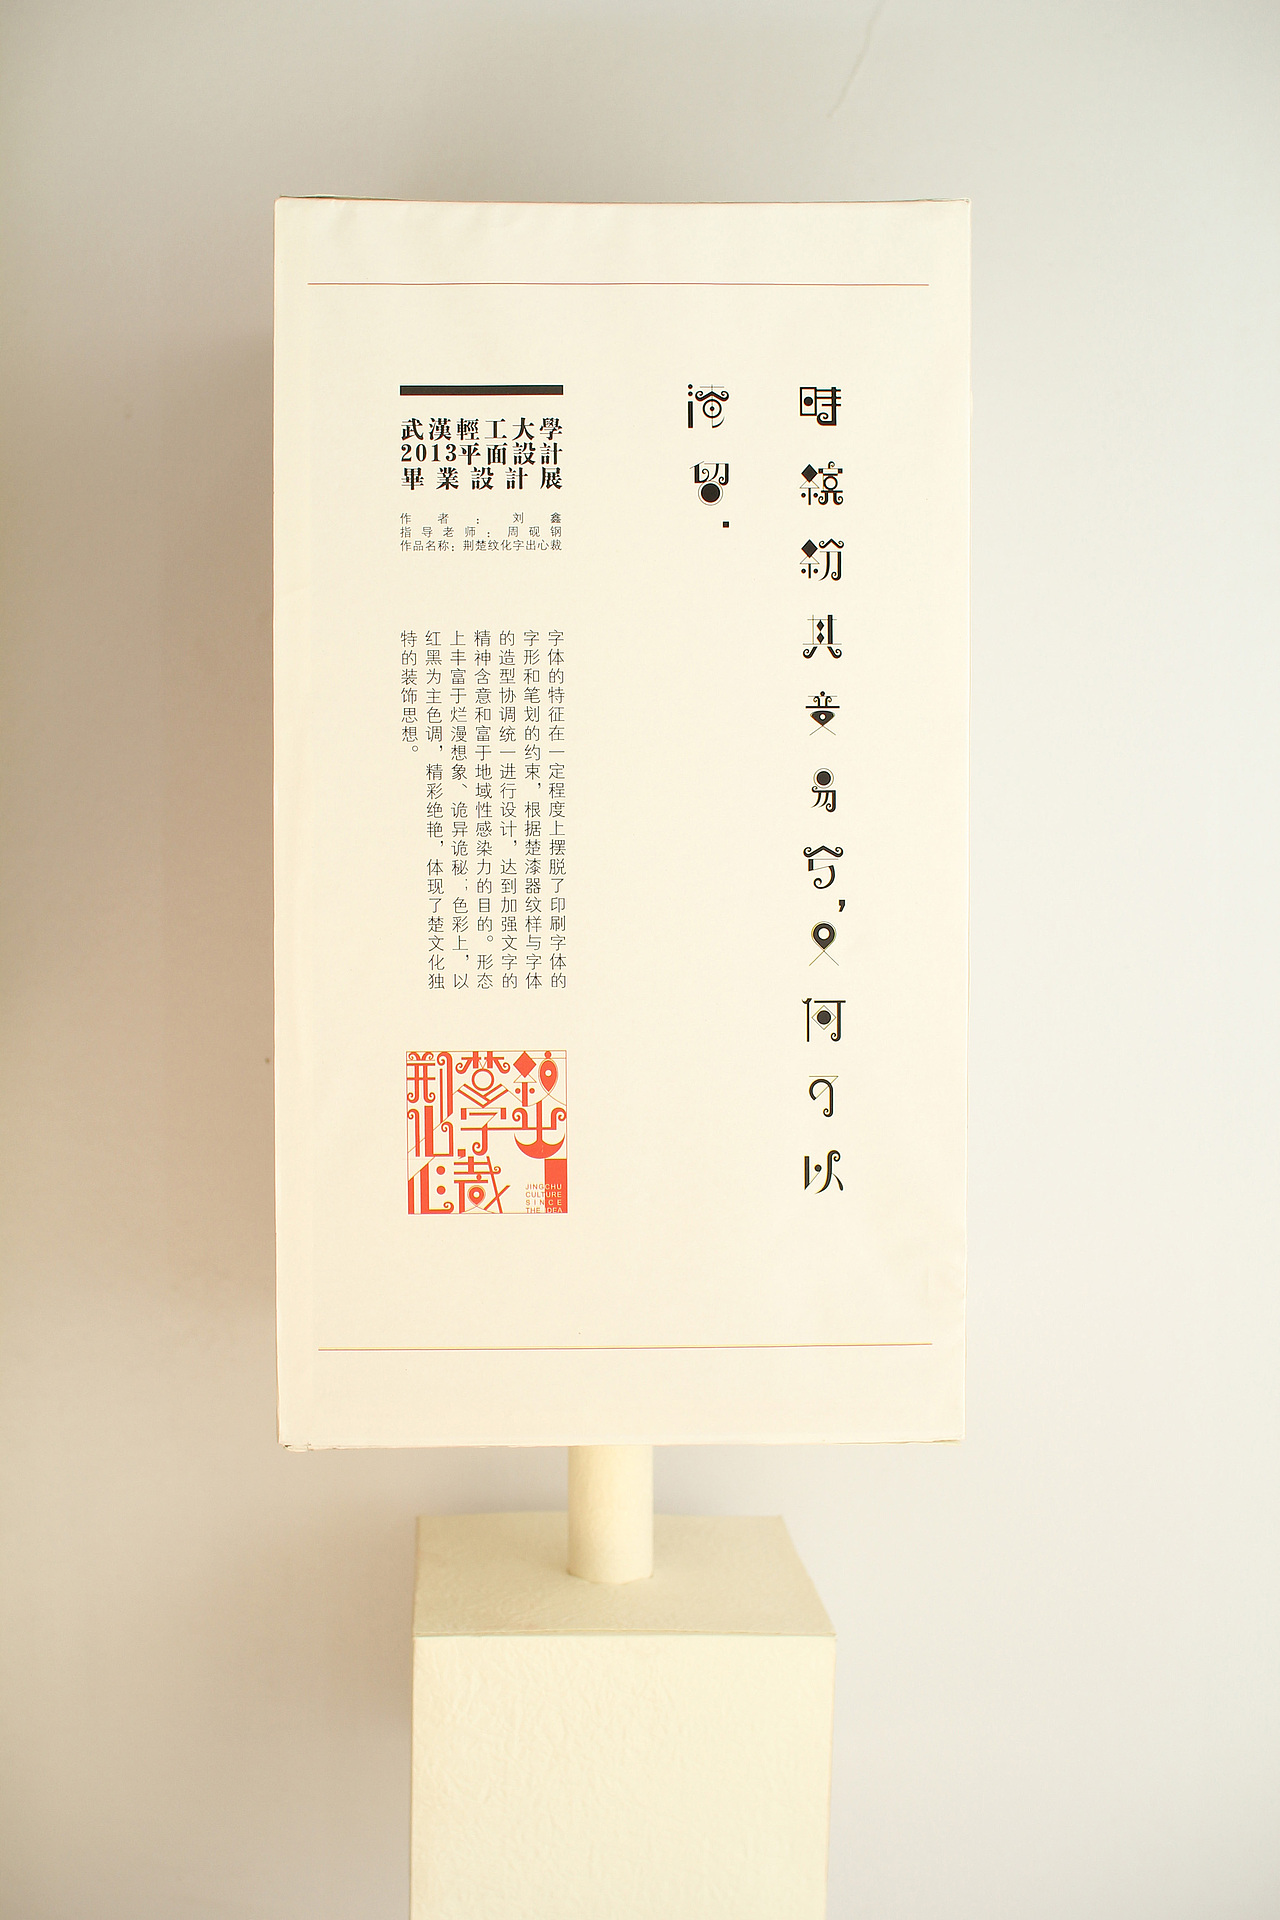 時繽紛其变易兮，又何可以
淹留.
武漢輕工大學
2013平面設計
畢業設計展
作者：刘鑫
指导老师：周砚钢
作品名称：荆楚纹化字出心裁
字体的特征在一定程度上摆脱了印刷字体的
字形和笔划的约束，根据楚漆器纹样与字体
的造型协调统一进行设计，达到加强文字的
精神含意和富于地域性感染力的目的。形态
上丰富于烂漫想象、诡异诡秘；色彩上，以
红黑为主色调，精彩绝艳，体现了楚文化独
特的装饰思想。
荆楚纹
化字出
心裁
JINGCHU
CULTURE
SINCE
THE IDEA